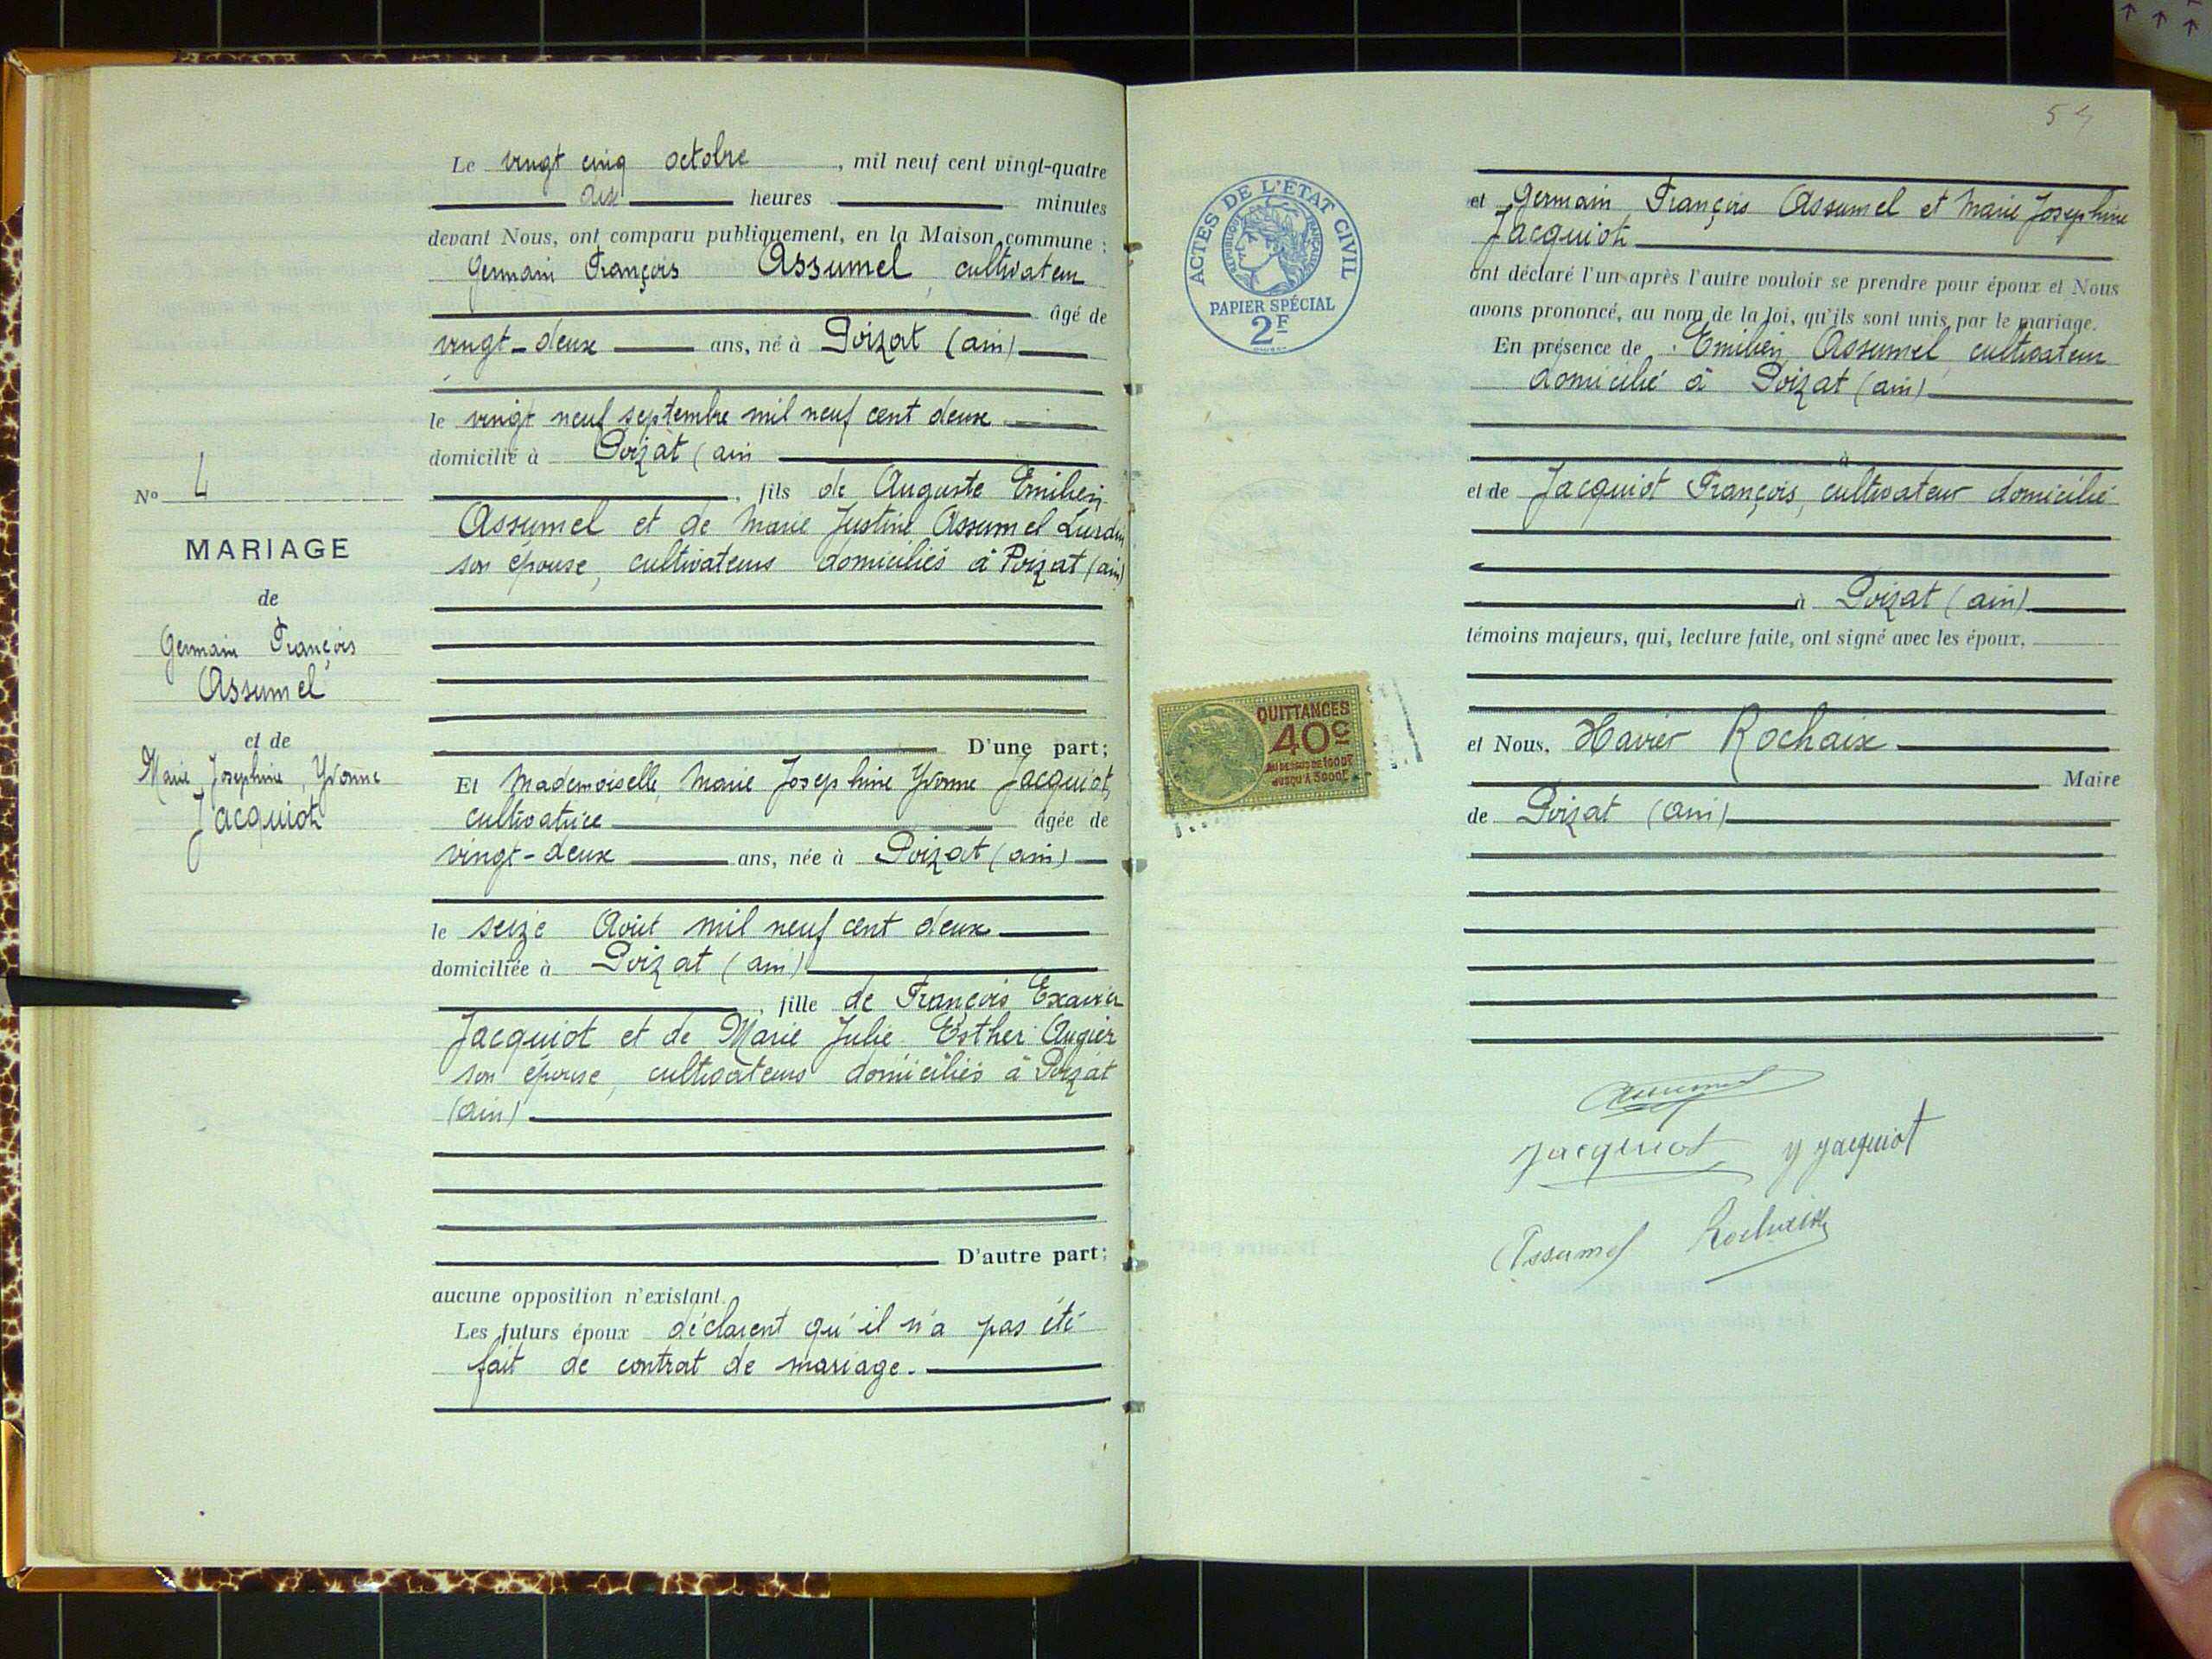 Le vingt cinq octobre, mil neuf cent vingt-quatre
dix heures minutes
devant Nous, ont comparu publiquement, en la Maison commune :
Germain François Assumel, cultivateur
âgé de
vingt-deux ans, né à Poizat (ain)
le vingt neuf septembre mil neuf cent deux
domicilié à Poizat (ain
, fils de Auguste Emilien
Assumel et de Marie Justine Assumel Lurdin
son épouse, cultivateurs domiciliés à Poizat (ain)
D'une part;
Nº 4
MARIAGE
de
Germain François
Assumel
et de
Marie Josephine, Yvonne
Jacquiot
Et Mademoiselle, Marie Josephine Yvonne Jacquiot,
cultivatrice âgée de
vingt-deux ans, née à Poizat (ain)
le seize Août mil neuf cent deux
domiciliée à Poizat (ain)
, fille de François Exavier
Jacquiot et de Marie Julie Esther Augier
son épouse, cultivateurs domiciliés à Poizat
(ain)
D'autre part;
aucune opposition n'existant.
Les futurs époux déclarent qu'il n'a pas été
fait de contrat de mariage.
54
ACTES DE L'ÉTAT CIVIL
RÉPUBLIQUE FRANÇAISE
PAPIER SPÉCIAL
2F
et Germain, François Assumel et Marie Josephine
Jacquiot
ont déclaré l'un après l'autre vouloir se prendre pour époux et Nous
avons prononcé, au nom de la loi, qu'ils sont unis par le mariage.
En présence de Emilien Assumel, cultivateur
domicilié à Poizat (ain)
à
et de Jacquiot François, cultivateur domicilié
à Poizat (ain)
témoins majeurs, qui, lecture faite, ont signé avec les époux.
QUITTANCES
40c
AU DESSUS DE 1000F
JUSQU'À 3000F
et Nous, Xavier Rochaix
Maire
de Poizat (ain)
Assumel
Jacquiot y Jacquiot
Assumel Rochaix